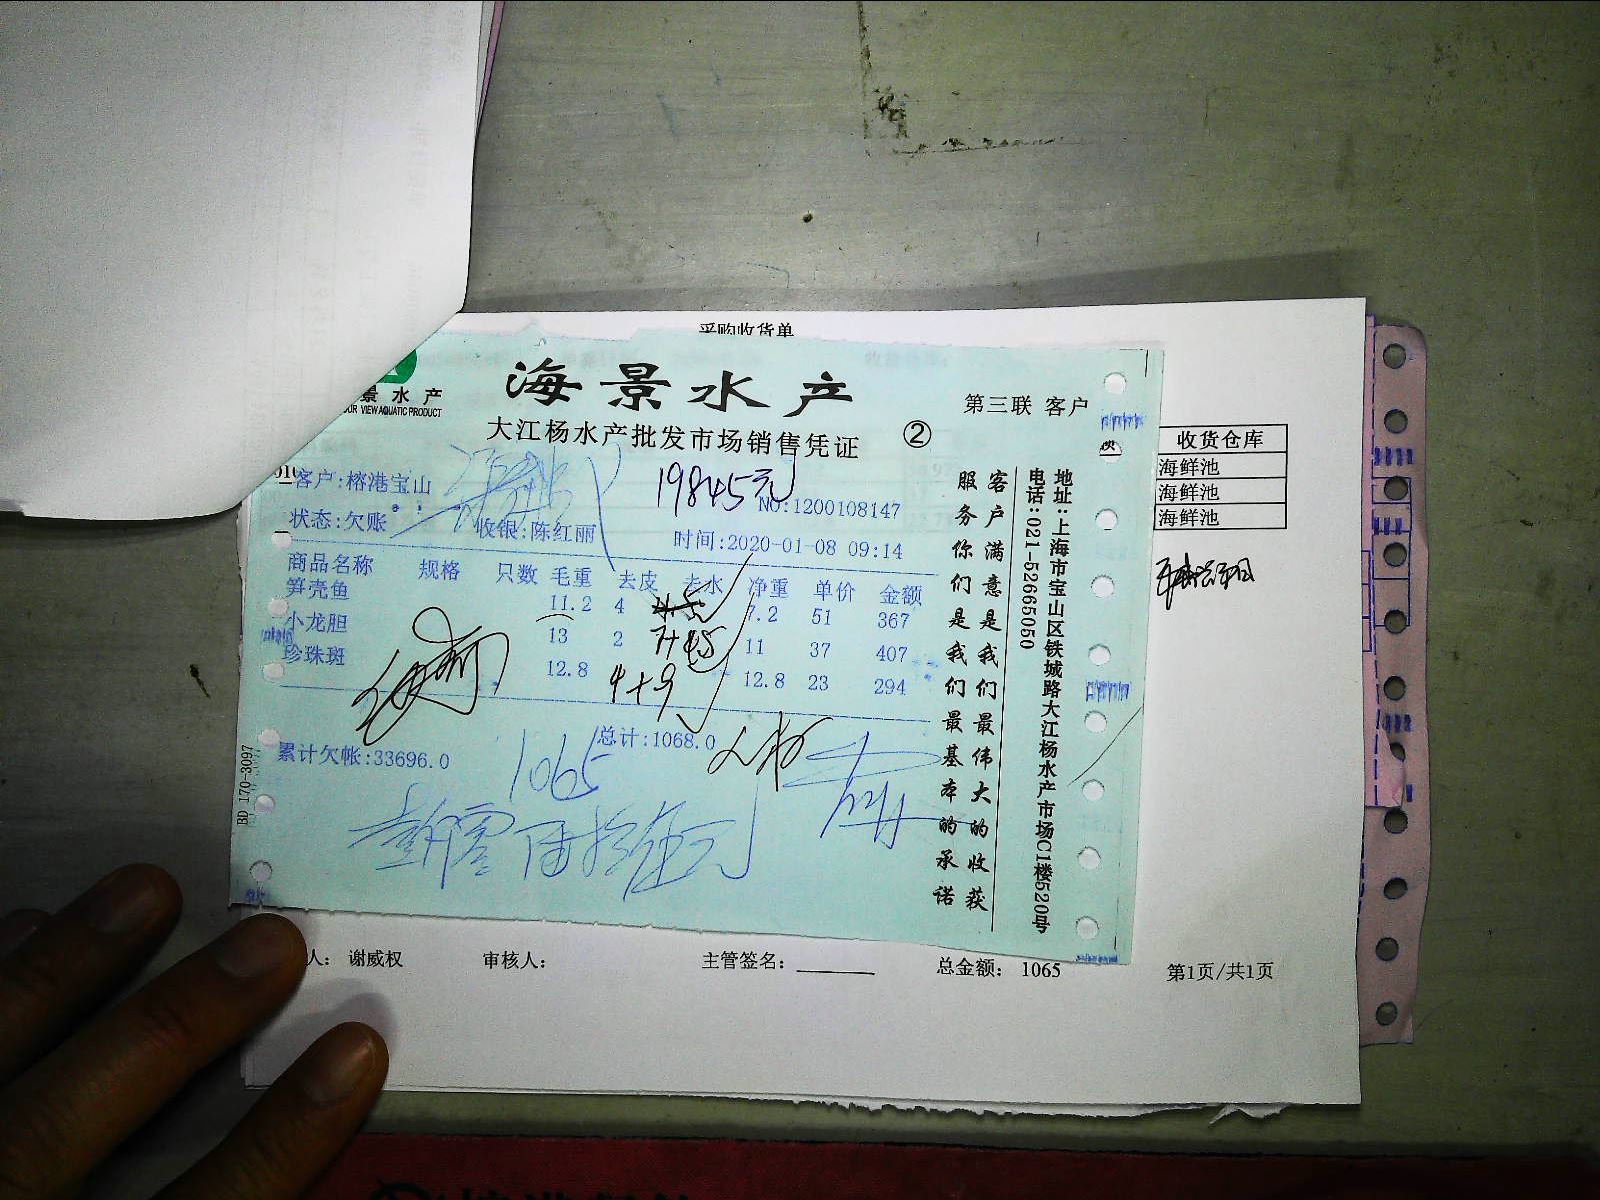 采购收货单
景水产
OUR VIEW AQUATIC PRODUCT
海景水产
第三联 客户
大江杨水产批发市场销售凭证
②
客户:榕港宝山
19845元
NO:1200108147
状态:欠账
收银:陈红丽
时间:2020-01-08 09:14
商品名称 规格 只数 毛重 去皮 去水 净重 单价 金额
笋壳鱼 11.2 4 7.2 51 367
小龙胆 13 2 11 37 407
珍珠斑 12.8 4+9 12.8 23 294
总计:1068.0
累计欠帐:33696.0
1065
壹仟零陆拾伍元
BD 170-3097
客户满意是我们最伟大的收获
服务你们是我们最基本的承诺
地址:上海市宝山区铁城路大江杨水产市场C1楼520号
电话:021-52665050
收货仓库
海鲜池
海鲜池
海鲜池
人: 谢威权
审核人:
主管签名:
总金额: 1065
第1页/共1页